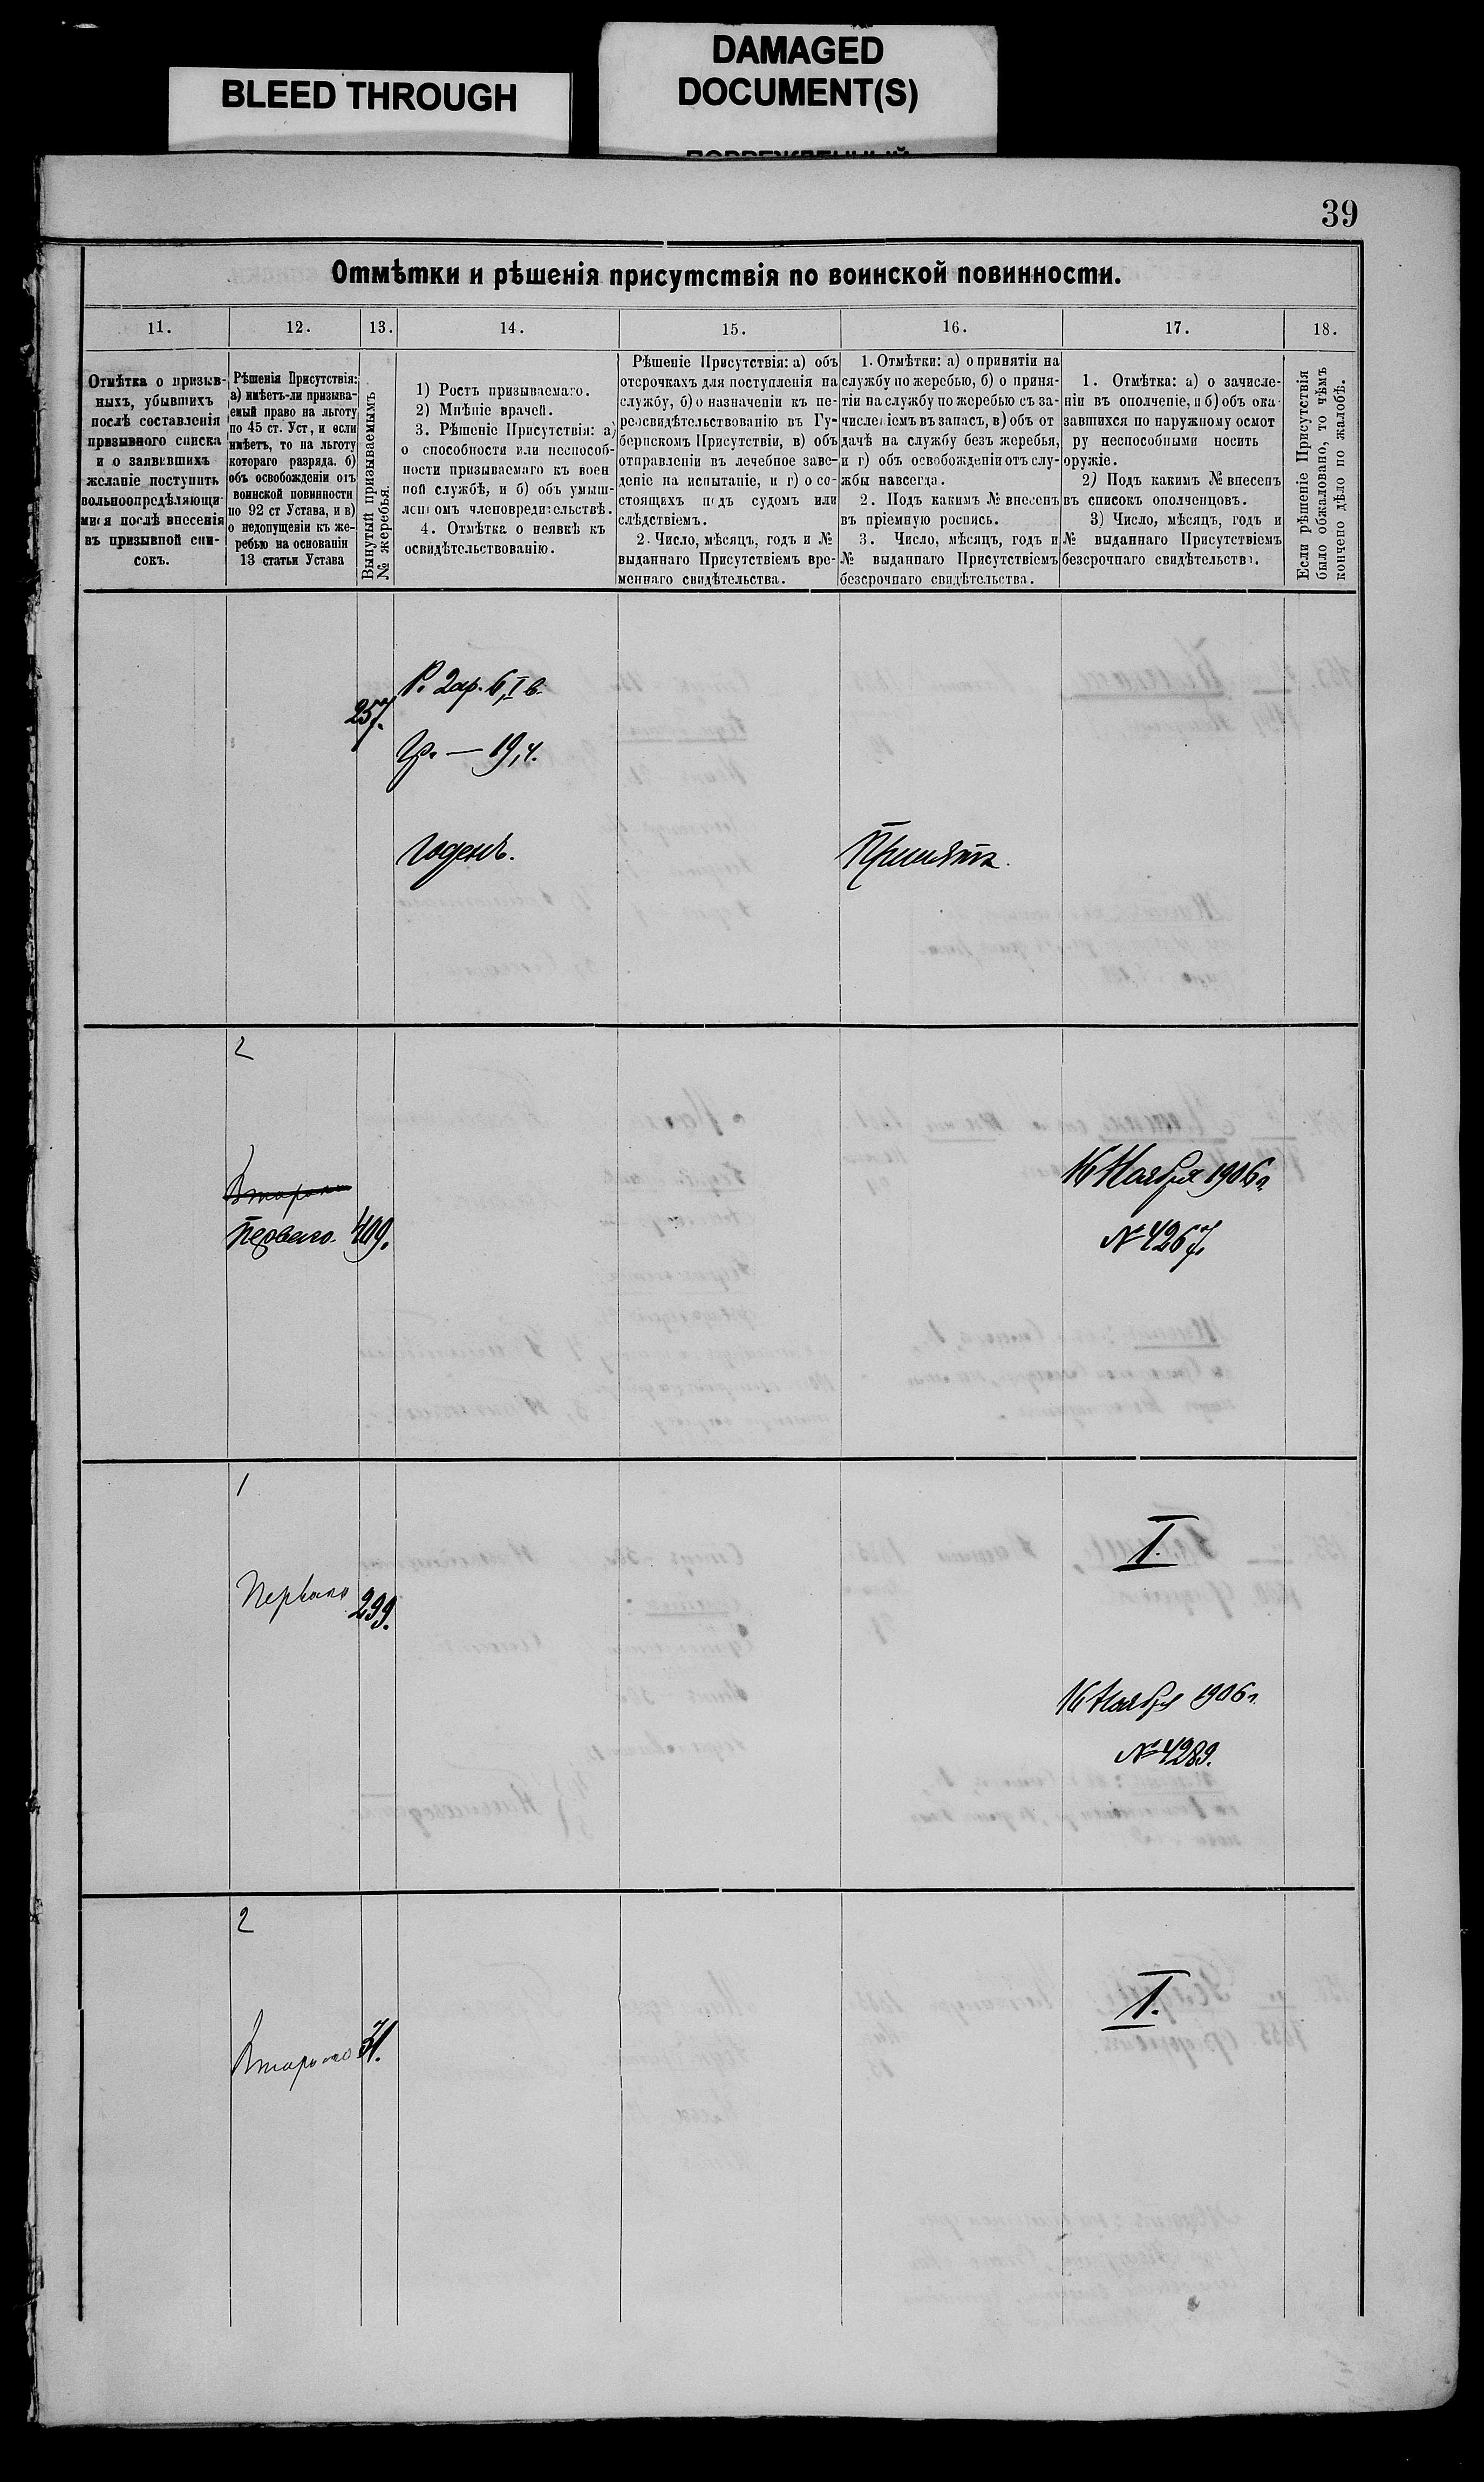 BLEED THROUGH
DAMAGED
DOCUMENT(S)
39
Отмѣтки и рѣшенія присутствія по воинской повинности.
11.
12.
13.
14.
15.
16.
17.
18.
Отмѣтка о призыв-
ныхъ, убывшихъ
послѣ составленія
призывного списка
и о заявившихъ
желаніе поступить
вольноопредѣляющи
мися послѣ внесенія
въ призывной спи-
сокъ.
Рѣшенія Присутствія:
а) имѣетъ-ли призыва-
емый право на льготу
по 45 ст. Уст, и если
имѣетъ, то на льготу
котораго разряда. б)
объ освобожденіи отъ
воинской повинности
по 92 ст Устава, и в)
о недопущеніи къ же-
ребью на основаніи
13 статьи Устава
Вынутый призываемымъ
№ жеребья.
1) Ростъ призываемаго.
2) Мнѣніе врачей.
3. Рѣшеніе Присутствія: а)
о способности или неспособ-
ности призываемаго къ воен
ной службѣ, и б) объ умыш-
леномъ членовредительствѣ.
4. Отмѣтка о неявкѣ къ
освидѣтельствованію.
Рѣшеніе Присутствія: а) объ
отсрочкахъ для поступленія на
службу, б) о назначеніи къ пе-
реосвидѣтельствованію въ Гу-
бернскомъ Присутствіи, в) объ
отправленіи въ лечебное заве-
деніе на испытаніе, и г) о со-
стоящихъ подъ судомъ или
слѣдствіемъ.
2. Число, мѣсяцъ, годъ и №
выданнаго Присутствіемъ вре-
меннаго свидѣтельства.
1. Отмѣтки: а) о принятіи на
службу по жеребью, б) о приня-
тіи на службу по жеребью съ за-
численіемъ въ запасъ, в) объ от
дачѣ на службу безъ жеребья,
и г) объ освобожденіи отъ слу-
жбы навсегда.
2. Подъ какимъ № внесенъ
въ пріемную роспись.
3. Число, мѣсяцъ, годъ и
№ выданнаго Присутствіемъ
безсрочнаго свидѣтельства.
1. Отмѣтка: а) о зачисле-
ніи въ ополченіе, и б) объ ока-
завшихся по наружному осмот
ру неспособными носить
оружіе.
2) Подъ какимъ № внесенъ
въ списокъ ополченцовъ.
3) Число, мѣсяцъ, годъ и
№ выданнаго Присутствіемъ
безсрочнаго свидѣтельства.
Если рѣшеніе Присутствія
было обжаловано, то чѣмъ
кончено дѣло по жалобѣ.
257.
Р. 2 ар. 6, I в.
Гр. — 19,4.
Годенъ.
Принятъ.
2
Второго
Перваго.
409.
16 Ноября 1906 г.
№ 4267.
1
Перваго
299.
I.
16 Ноября 1906 г.
№ 4289.
2
Второго
31.
I.